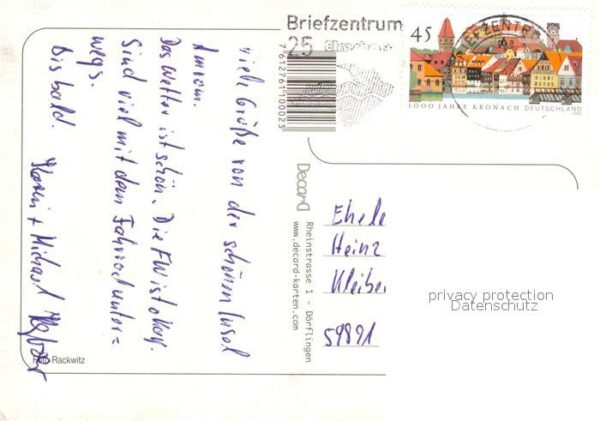 Briefzentrum
25
45
BRIEFZENTR
1000 JAHRE KRONACH DEUTSCHLAND
7612761100023
viele Grüße von der schönen Insel
Amrum.
Das Wetter ist schön. Die FW ist okay.
Sind viel mit dem Fahrrad unter=
wegs.
Bis bald.
+ Michael
Rackwitz
Decard
Rheinstrasse 1 - Dörflingen
www.decard-karten.com
Ehele
Heinz
Kleiber
59821
privacy protection
Datenschutz